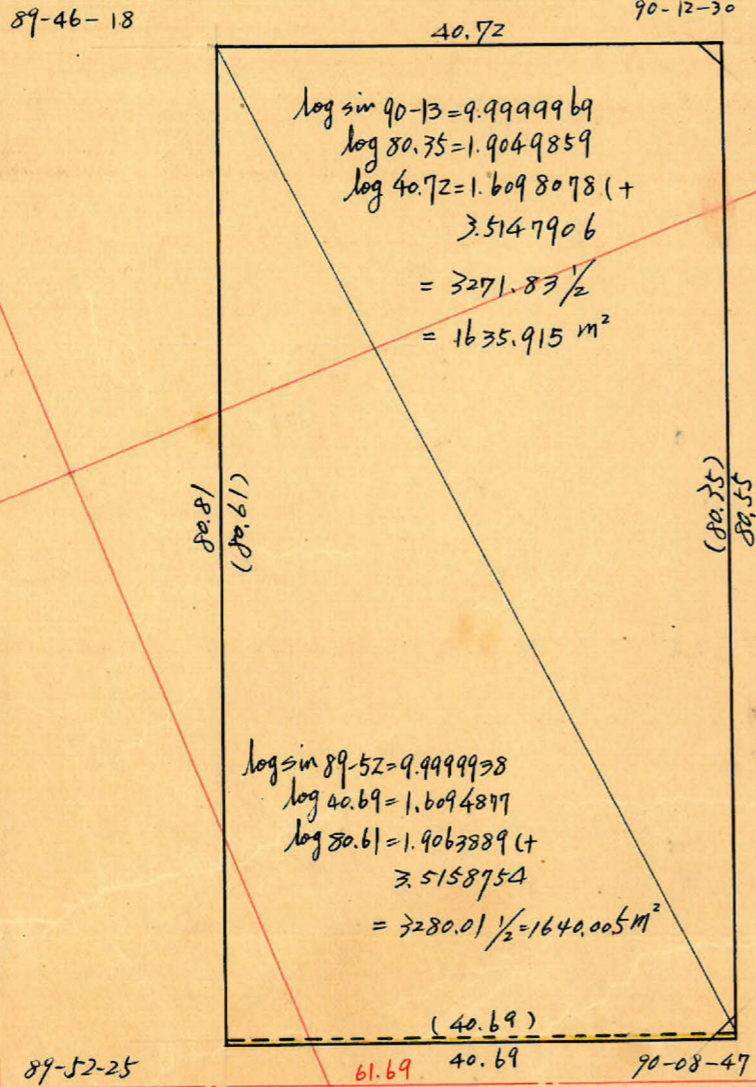 89-46-18
40.72
90-12-30
log sin 90-13=9.9999969
log 80.35=1.9049859
log 40.72=1.6098078 (+
3.5147906
= 3271.83 1/2
= 1635.915 m²
80.81
(80.61)
(80.35)
80.55
log sin 89-52=9.9999938
log 40.69=1.6094877
log 80.61=1.9063889 (+
3.5158754
= 3280.01 1/2=1640.005 m²
(40.69)
89-52-25
61.69
40.69
90-08-47